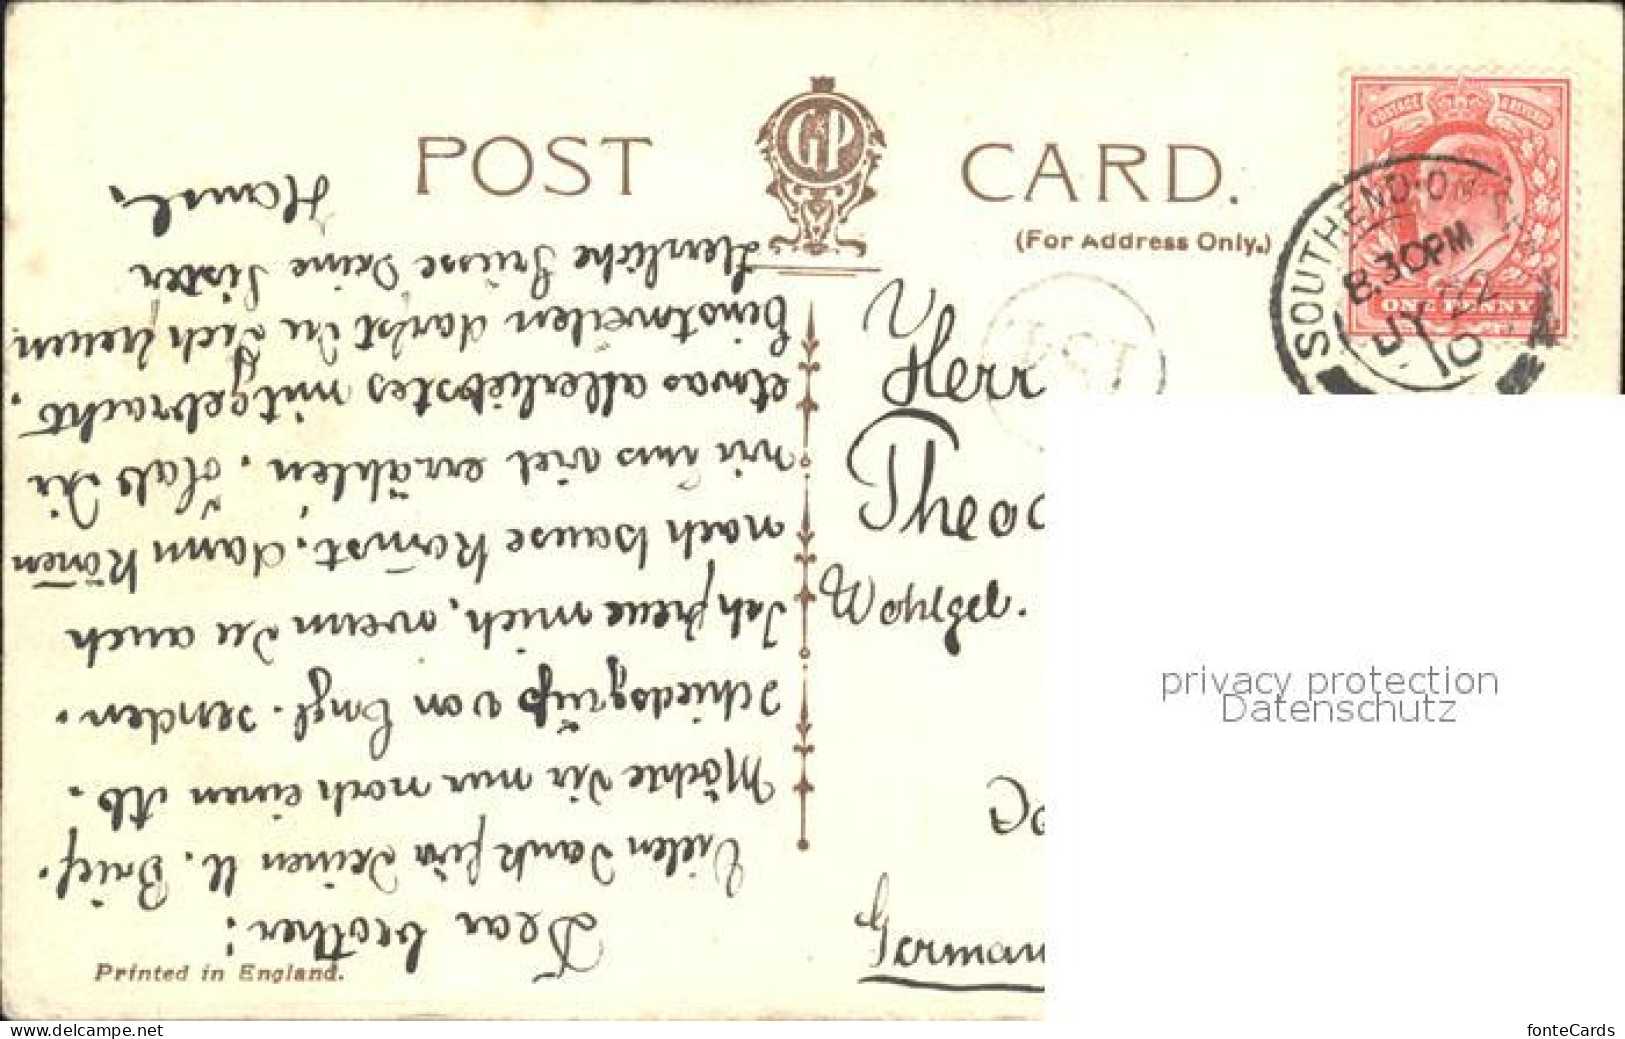 POST CARD.
G&P
(For Address Only.)
POSTAGE REVENUE
ONE PENNY
SOUTHEND-ON-SEA
8.30PM
JY 22
10
Dear brother!
Vielen Dank für Deinen lb. Brief.
Möchte Dir nur noch einen Ab-
schiedsgruß von Engl. senden.
Ich freue mich, wenn Du auch
nach hause kom̄st, dann kön̄en
wir uns viel erzählen. Hab Dir
etwas allerliebstes mitgebracht.
Einstweilen darfst Du Dich freuen
Herzliche Grüsse Deine Sister
Hansl.
Herr
Theod
Wohlgeb.
Do
German
Printed in England.
privacy protection
Datenschutz
www.delcampe.net
fonteCards